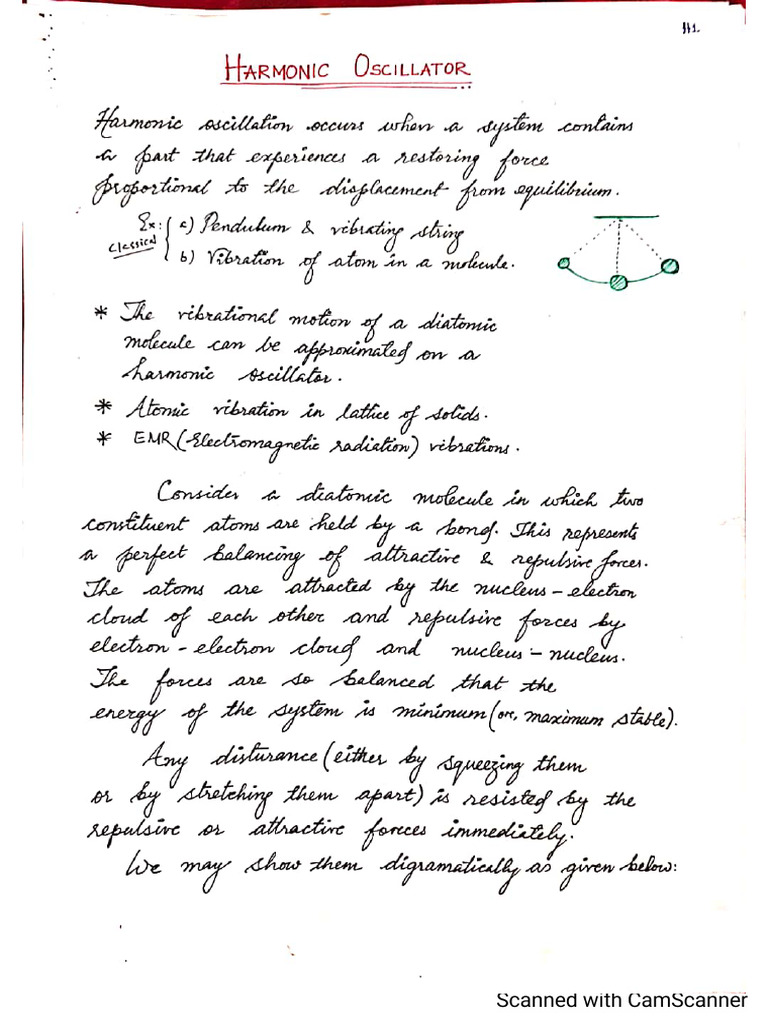 H1.
HARMONIC OSCILLATOR
Harmonic oscillation occurs when a system contains
a part that experiences a restoring force
proportional to the displacement from equilibrium.
Ex: a) Pendulum & vibrating string
Classical b) Vibration of atom in a molecule.
* The vibrational motion of a diatomic
molecule can be approximated on a
harmonic oscillator.
* Atomic vibration in lattice of solids.
* EMR (Electromagnetic radiation) vibrations.
Consider a diatomic molecule in which two
constituent atoms are held by a bond. This represents
a perfect balancing of attractive & repulsive forces.
The atoms are attracted by the nucleus - electron
cloud of each other and repulsive forces by
electron - electron cloud and nucleus - nucleus.
The forces are so balanced that the
energy of the system is minimum (or, maximum stable).
Any disturance (either by squeezing them
or by stretching them apart) is resisted by the
repulsive or attractive forces immediately.
We may show them digramatically as given below:
Scanned with CamScanner